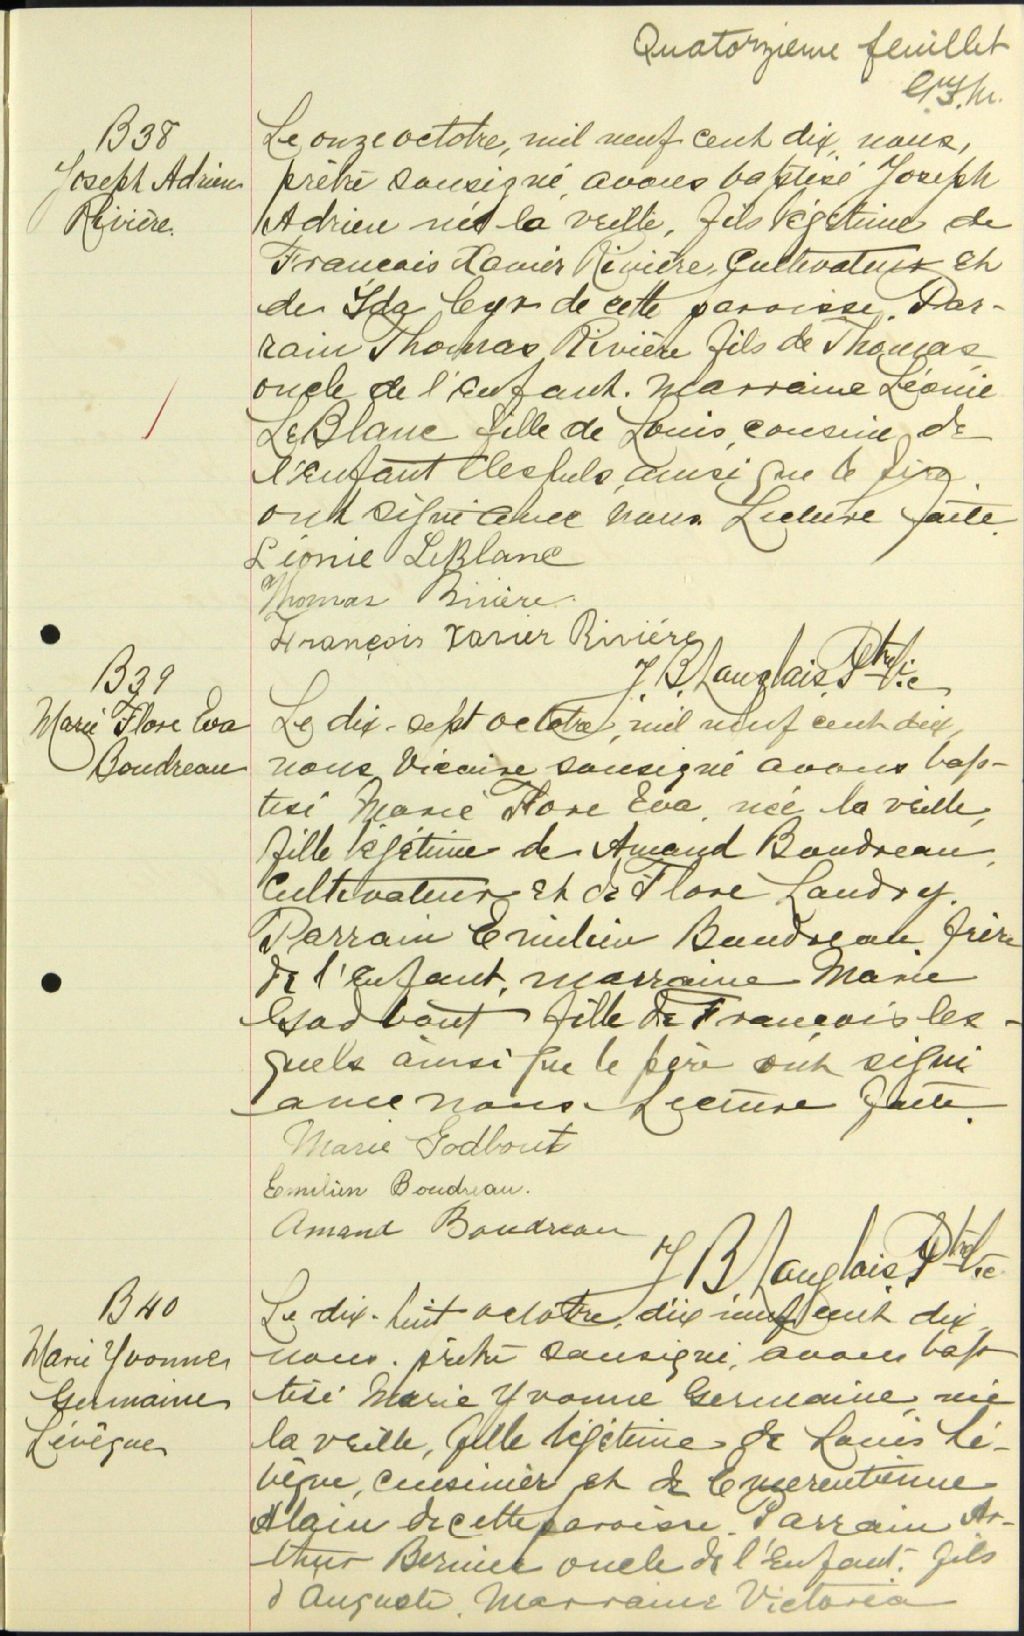 Quatorzieme feuillet
B38
Joseph Adrien
Rivière.
Le onze octobre, mil neuf cent dix, nous,
prêtre sousigné, avons baptisé Joseph
Adrien né la veille, fils légitime de
Francois Xavier Rivière, Cultivateur et
de Ida Cyr de cette paroisse. Par-
rain Thomas Rivière fils de Thomas,
oncle de l'enfant. Marraine Léonie
LeBlanc fille de Louis, cousine de
l'enfant lesquels, ainsi que le père
ont signé avec nous. Lecture faite.
Léonie LeBlanc
Thomas Rivière
François Xavier Riviére
J. B. Langlais, Ptre Vic
B39
Marie Flore Eva
Boudreau
Le dix-sept octobre, mil neuf cent dix,
nous Vicaire sousigné avons bap-
tisé Marie Flore Eva, née la veille,
fille légitime de Amand Boudreau,
Cultivateur et de Flore Landry.
Parrain Emilien Boudreau, frère
de l'enfant, marraine Marie
Godbout fille de François les-
quels ainsi que le père ont signé
avec nous. Lecture faite.
Marie Godbout
Emilien Boudreau.
Amand Boudreau
J B Langlais, Ptre Vic
B40
Marie Yvonne
Germaine
Lévêque
Le dix-huit octobre, dix neuf cent dix,
nous, prêtre sousigné, avons bap
tisé Marie Yvonne Germaine, née
la veille, fille légitime de Louis Lé-
vêque, cuisinier et de Emerentienne
Alain de cette paroisse. Parrain Ar-
thur Bernier oncle de l'Enfant, fils
d'Auguste. Marraine Victoria